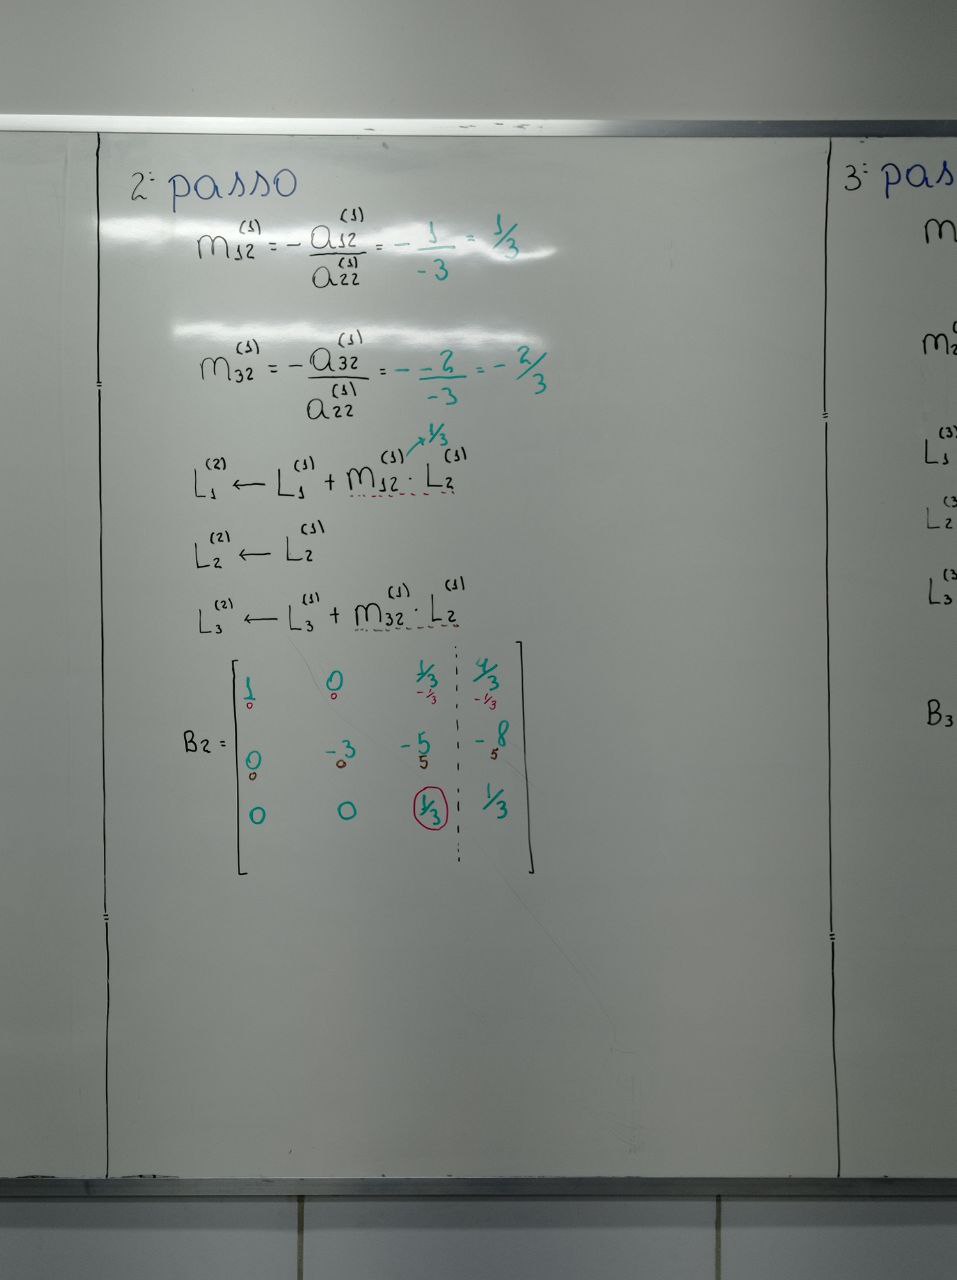 2º passo
m12^(1) = - a12^(1) / a22^(1) = - 1 / -3 = 1/3
m32^(1) = - a32^(1) / a22^(1) = - -2 / -3 = - 2/3
1/3
L1^(2) ← L1^(1) + m12^(1) · L2^(1)
L2^(2) ← L2^(1)
L3^(2) ← L3^(1) + m32^(1) · L2^(1)
1 0 1/3 4/3
0 0 -1/3 -1/3
B2 =
0 -3 -5 -8
0 0 5 5
0 0 1/3 1/3
3º pas
m
m2
L1^(3
L2^(3
L3^(3
B3